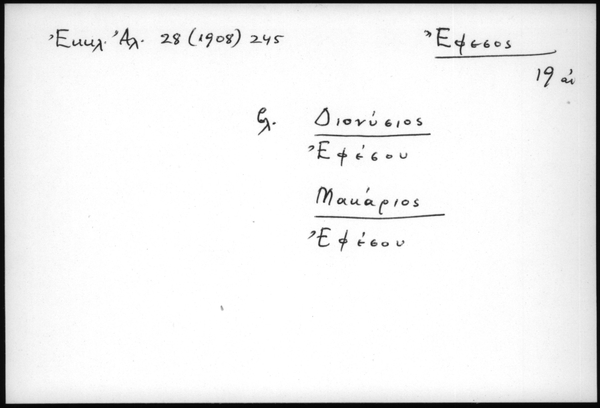 Ἐκκλ. Ἀλ. 28 (1908) 245
Ἔφεσος
19 αἰ
βλ. Διονύσιος
Ἐφέσου
Μακάριος
Ἐφέσου